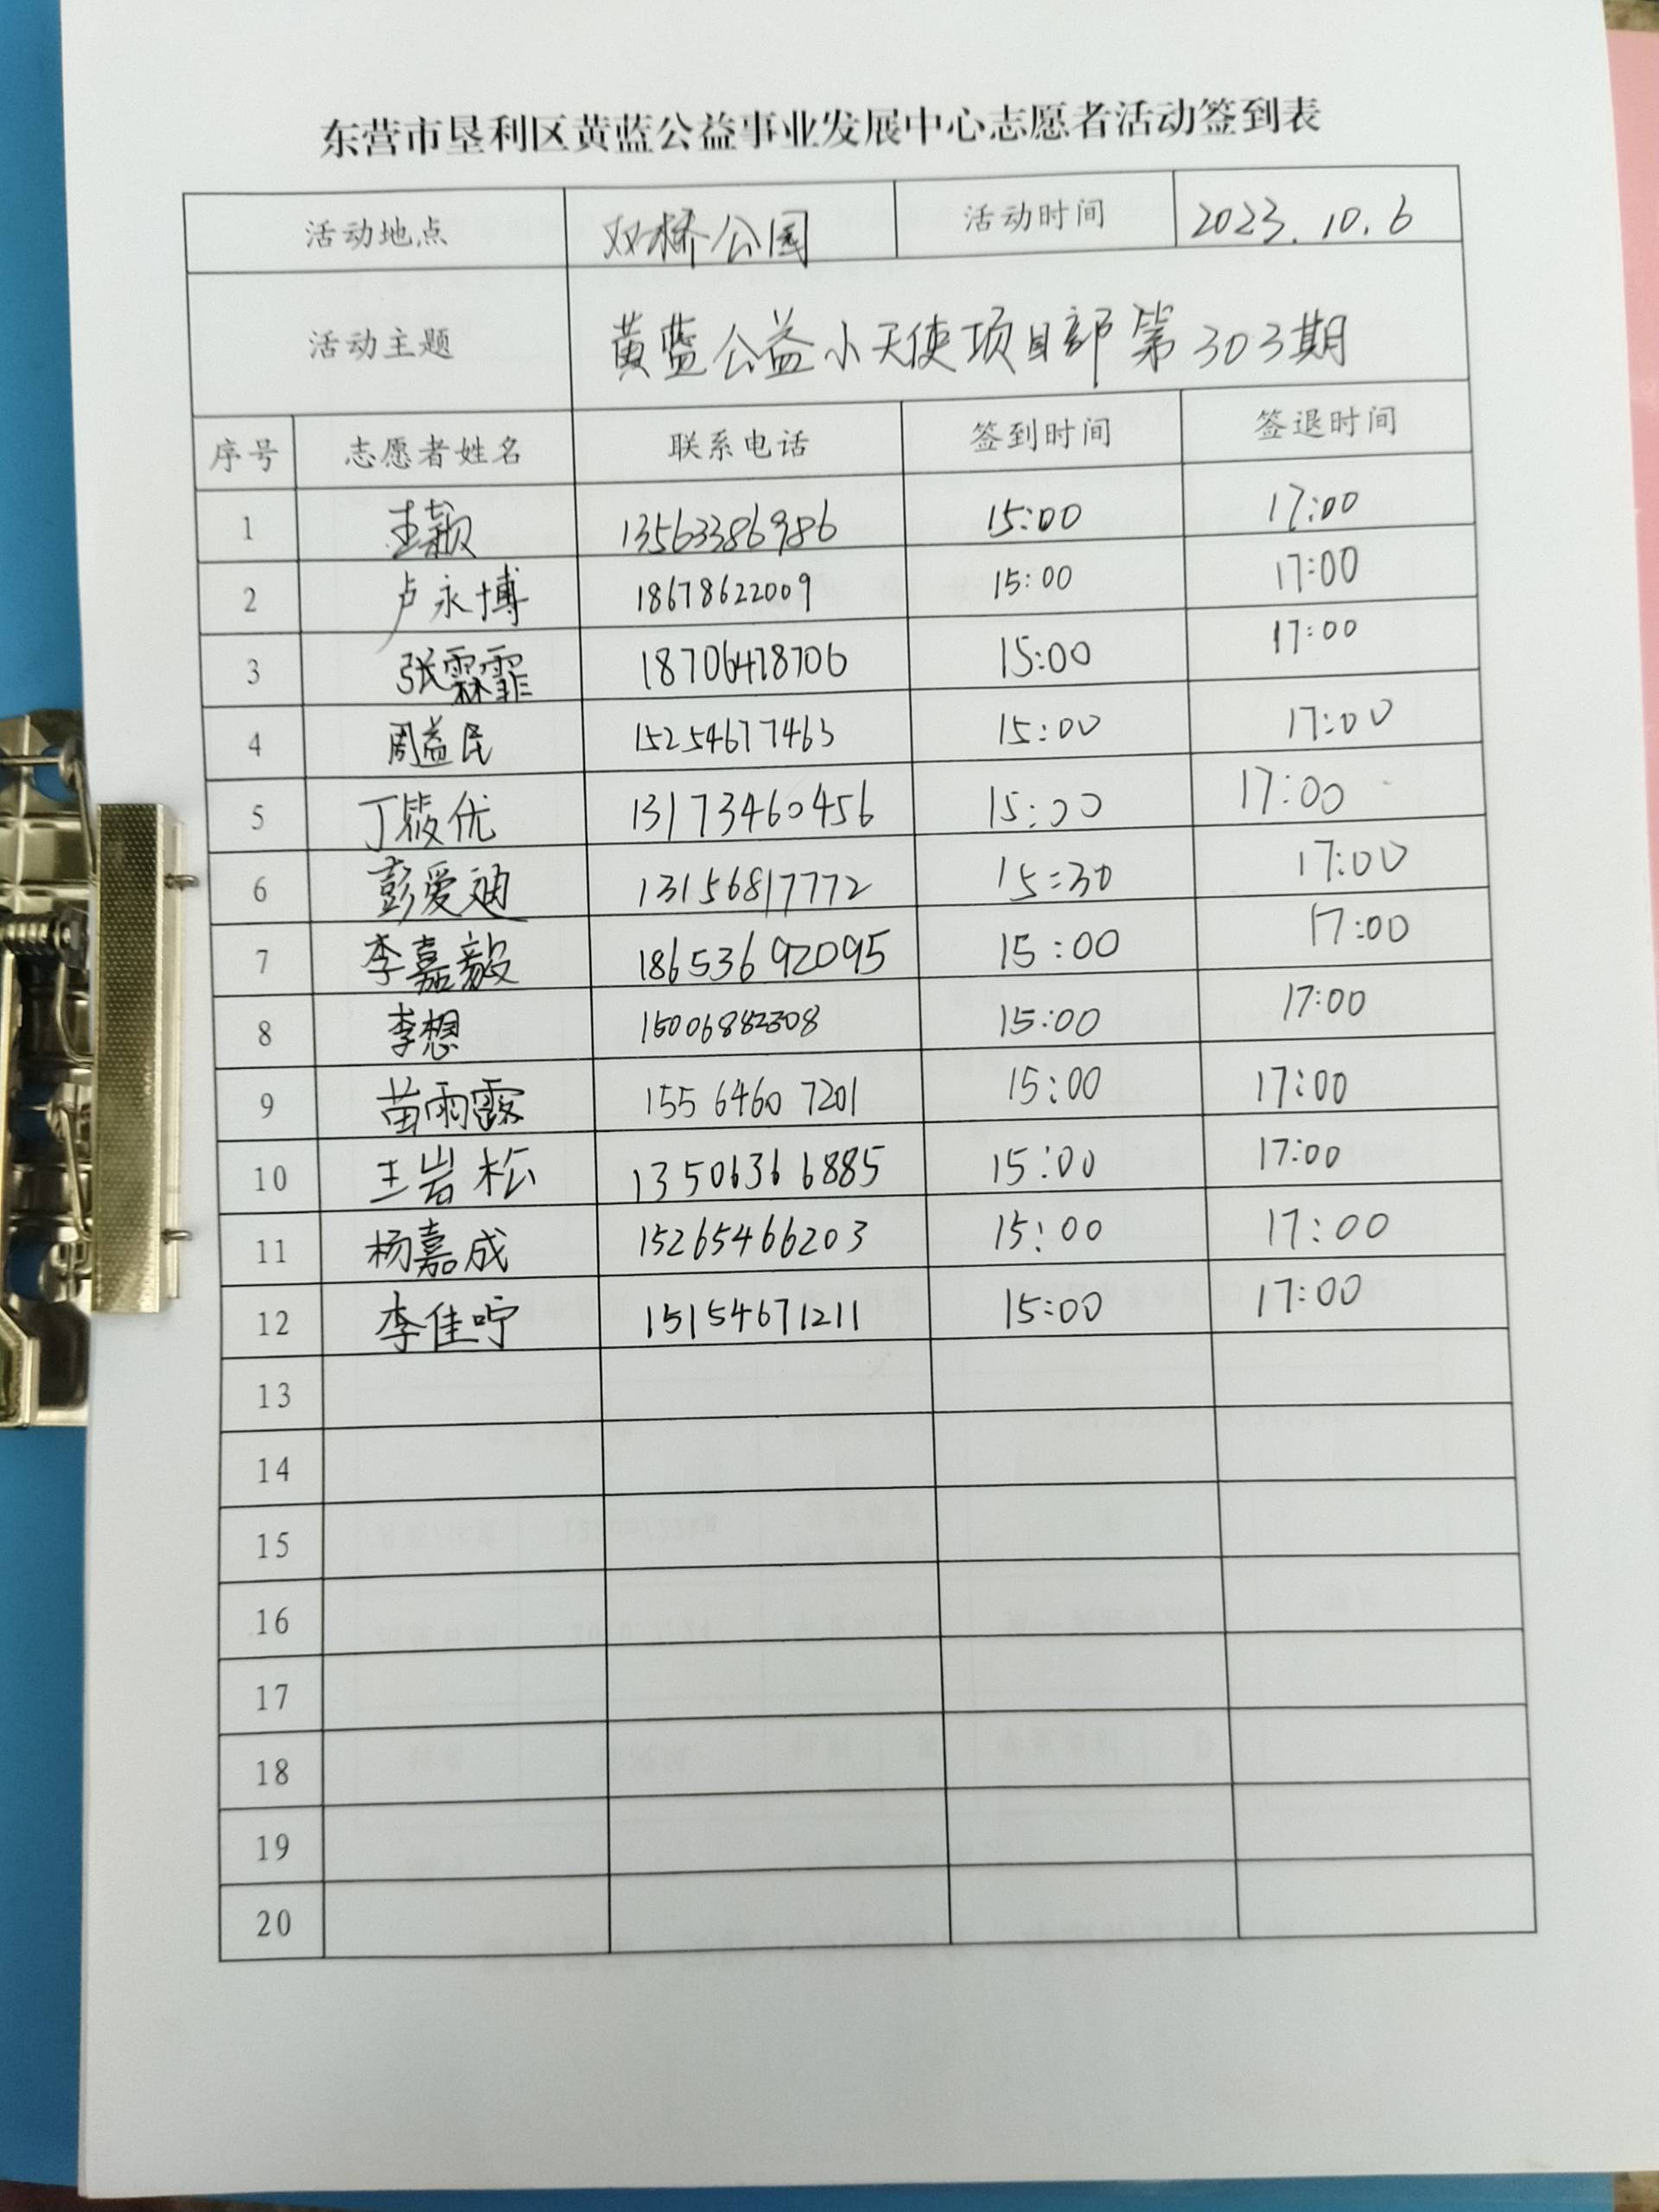 东营市垦利区黄蓝公益事业发展中心志愿者活动签到表
活动地点 双桥公园 活动时间 2023.10.6
活动主题 黄蓝公益小天使项目部第303期
序号 志愿者姓名 联系电话 签到时间 签退时间
1 王颖 13563386986 15:00 17:00
2 卢永博 18678622009 15:00 17:00
3 张霖霏 18706478706 15:00 17:00
4 周益民 15254677463 15:00 17:00
5 丁筱优 13173460456 15:00 17:00
6 彭爱迪 13156817772 15:30 17:00
7 李嘉毅 18653692095 15:00 17:00
8 李想 15006882308 15:00 17:00
9 苗雨露 15564607201 15:00 17:00
10 王岩松 13506366885 15:00 17:00
11 杨嘉成 15265466203 15:00 17:00
12 李佳咛 15154671211 15:00 17:00
13
14
15
16
17
18
19
20